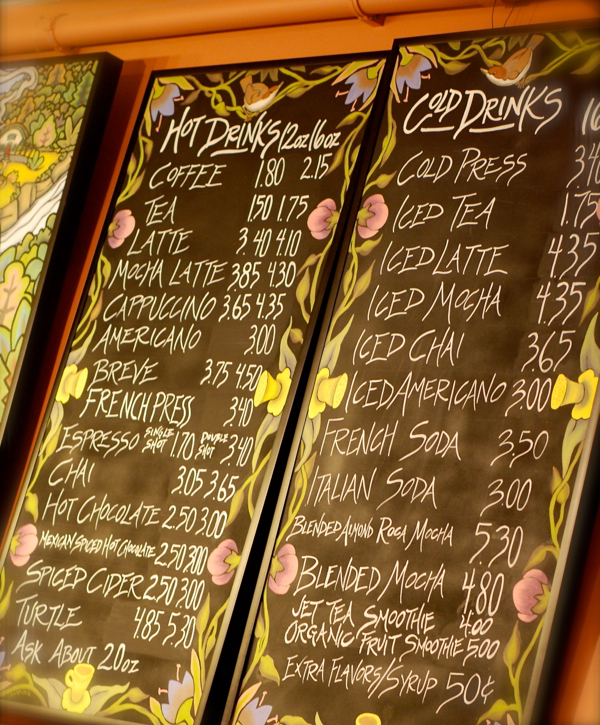 HOT DRINKS 12oz 16oz
COFFEE 1.80 2.15
TEA 1.50 1.75
LATTE 3.40 4.10
MOCHA LATTE 3.85 4.30
CAPPUCCINO 3.65 4.35
AMERICANO 3.00
BREVE 3.75 4.50
FRENCH PRESS 3.40
ESPRESSO SINGLE SHOT 1.70 DOUBLE SHOT 3.40
CHAI 3.05 3.65
HOT CHOCOLATE 2.50 3.00
MEXICAN SPICED HOT CHOCOLATE 2.50 3.00
SPICED CIDER 2.50 3.00
TURTLE 4.85 5.30
ASK ABOUT 20oz
COLD DRINKS 16
COLD PRESS
ICED TEA 1.75
ICED LATTE 4.35
ICED MOCHA 4.35
ICED CHAI 3.65
ICED AMERICANO 3.00
FRENCH SODA 3.50
ITALIAN SODA 3.00
BLENDED ALMOND ROCA MOCHA 5.30
BLENDED MOCHA 4.80
JET TEA SMOOTHIE 4.00
ORGANIC FRUIT SMOOTHIE 5.00
EXTRA FLAVORS/SYRUP 50¢